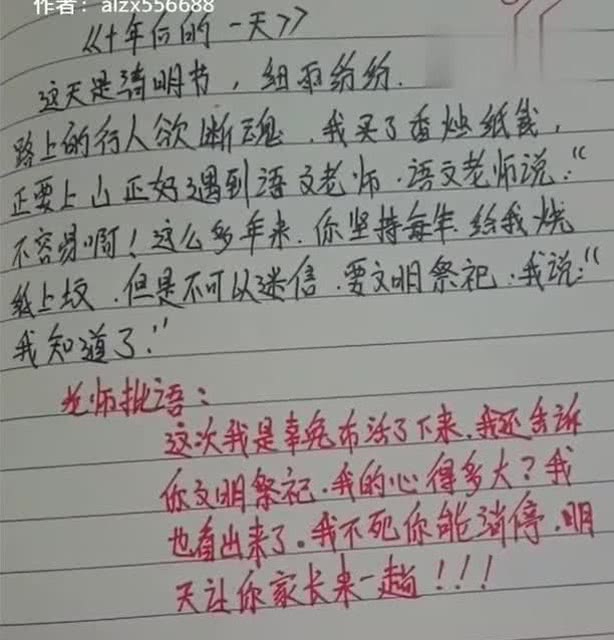 作者：alzx556688
《十年后的一天》
这天是清明节，细雨纷纷.
路上的行人欲断魂.我买了香烛纸钱，
正要上山正好遇到语文老师.语文老师说：“
不容易啊！这么多年来.你坚持每年给我烧
纸上坟.但是不可以迷信.要文明祭祀.我说：“
我知道了.”
老师批语：
这次我是幸免而活了下来.我还告诉
你文明祭祀.我的心得多大？我
也看出来了。我不死你能消停.明
天让你家长来一趟！！！